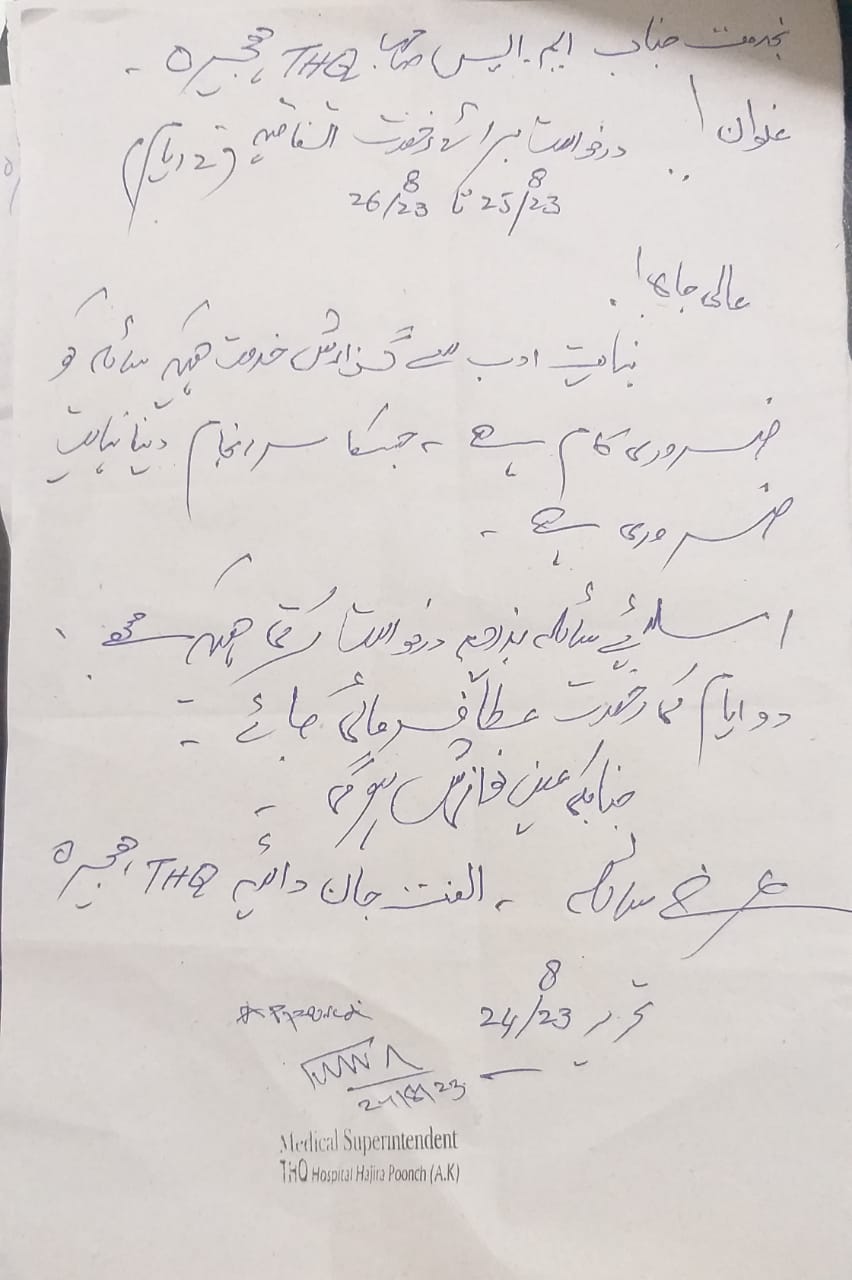 بخدمت جناب ایم۔ایس صاحب THQ ہجیرہ ۔
عنوان! درخواست برائے رخصت اتفاقیہ (2 ایام)
25/8/23 تا 26/8/23
عالی جاہ!
نہایت ادب سے گزارش خدمت ہیکہ سائلہ کو
ضروری کام ہے ۔ جسکا سرانجام دینا نہایت
ضروری ہے ۔
اسلئے سائلہ بذریعہ درخواست کرتی ہیکہ مجھے
دو ایام کی رخصت عطا فرمائی جائے ۔
جنابکی عین نوازش ہوگی ۔
عرضے سائلہ ۔ الفت جان دائیہ THQ ہجیرہ
تحریر 24/8/23
24/8/23
Medical Superintendent
THQ Hospital Hajira Poonch (A.K)